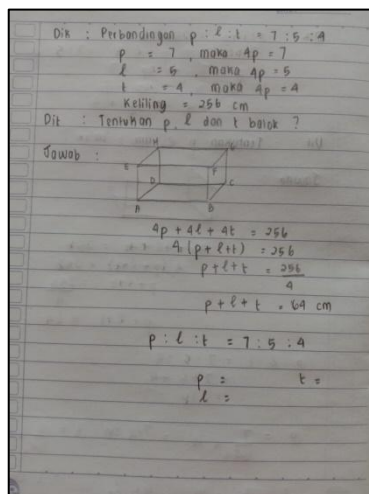 Dik : Perbandingan p : l : t = 7 : 5 : 4
p = 7, maka 4p = 7
l = 5, maka 4p = 5
t = 4, maka 4p = 4
Keliling = 256 cm
Dit : Tentukan p, l dan t balok ?
Jawab :
H
E F
D C
A B
4p + 4l + 4t = 256
4 (p + l + t) = 256
p + l + t = 256
4
p + l + t = 64 cm
p : l : t = 7 : 5 : 4
p = t =
l =